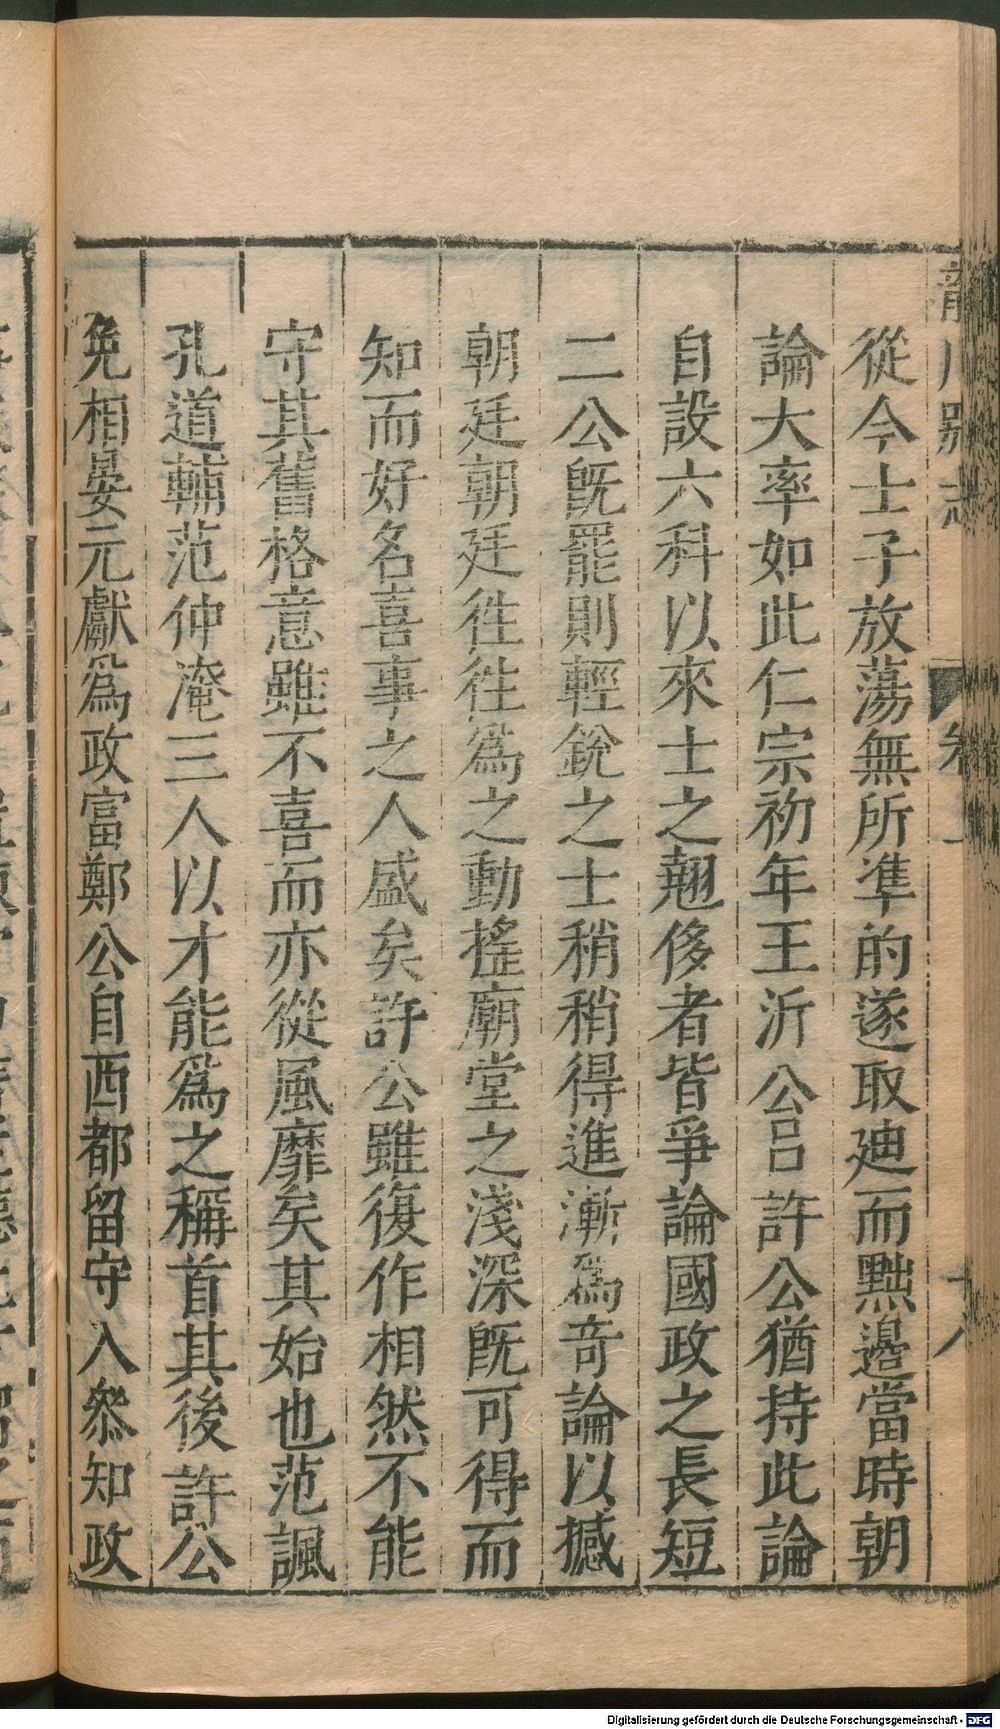 從今士子放蕩無所準的遂取廸而黜邉當時朝
論大率如此仁宗初年王沂公呂許公猶持此論
自設六科以來士之翹侈者皆爭論國政之長短
二公旣罷則輕銳之士稍稍得進漸爲奇論以撼
朝廷朝廷徃徃爲之動搖廟堂之淺深旣可得而
知而好名喜事之人盛矣許公雖復作相然不能
守其舊格意雖不喜而亦從風靡矣其始也范諷
孔道輔范仲淹三人以才能爲之稱首其後許公
免相晏元獻爲政富鄭公自西都留守入叅知政
Digitalisierung gefördert durch die Deutsche Forschungsgemeinschaft - DFG